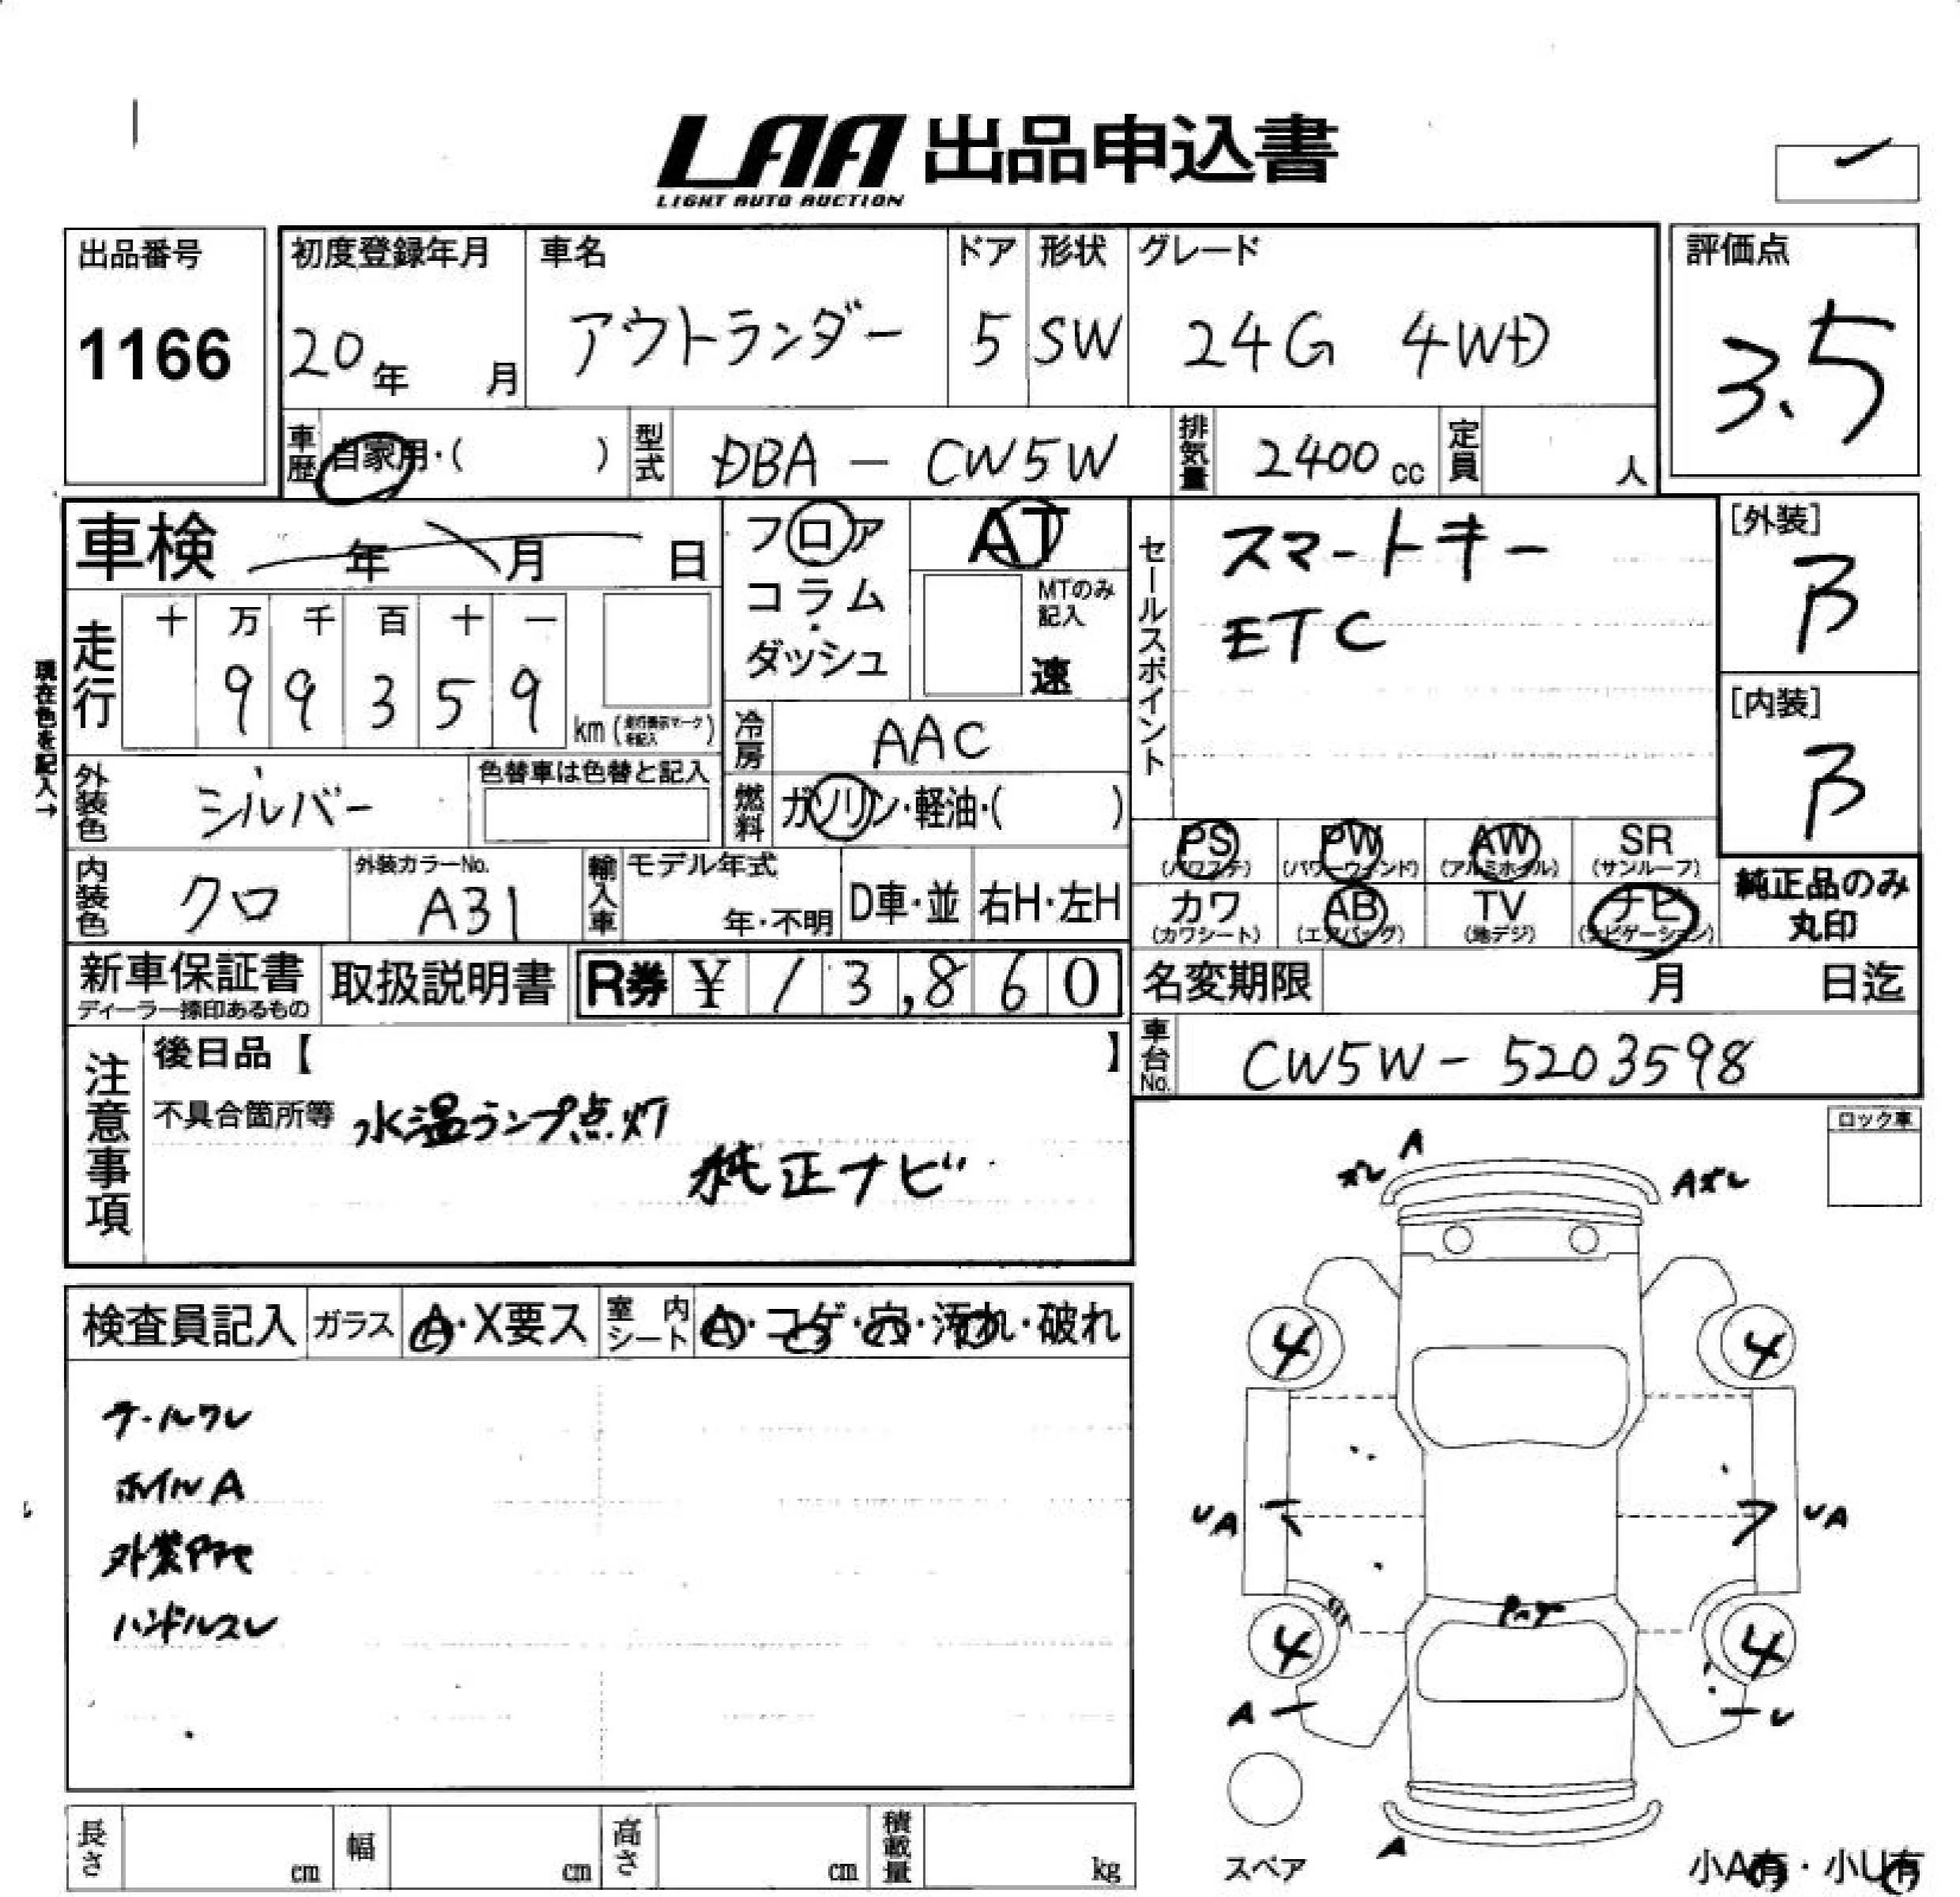 LAA 出品申込書
LIGHT AUTO AUCTION
出品番号
1166
初度登録年月
20年 月
車名
アウトランダー
ドア
5
形状
SW
グレード
24G 4WD
評価点
3.5
車歴
自家用・( )
型式
DBA - CW5W
排気量
2400 cc
定員
人
車検 年 月 日
フロア
コラム
・
ダッシュ
AT
MTのみ
記入
速
セールスポイント
スマートキー
ETC
[外装]
B
[内装]
B
現在色を記入→
走行
十 万 千 百 十 一
9 9 3 5 9
km (走行表示マークを記入)
冷房
AAC
外装色
シルバー
色替車は色替と記入
燃料
ガソリン・軽油・( )
PS (パワステ)
PW (パワーウィンド)
AW (アルミホイル)
SR (サンルーフ)
カワ (カワシート)
AB (エアバッグ)
TV (地デジ)
ナビ (ナビゲーション)
純正品のみ
丸印
内装色
クロ
外装カラーNo.
A31
輸入車
モデル年式
年・不明
D車・並
右H・左H
新車保証書
ディーラー捺印あるもの
取扱説明書
R券 ¥ 13,860
名変期限 月 日迄
車台No.
CW5W - 5203598
注意事項
後日品【 】
不具合箇所等 水温ランプ点灯
純正ナビ
ロック車
A
ズレ
Aズレ
検査員記入
ガラス
A・X要ス
室内シート
A・コゲ・穴・汚れ・破れ
ホイルA
ハンドルスレ
4
4
UA
UA
4
4
A
U
A
スペア
小A有・小U有
長さ cm
幅 cm
高さ cm
積載量 kg